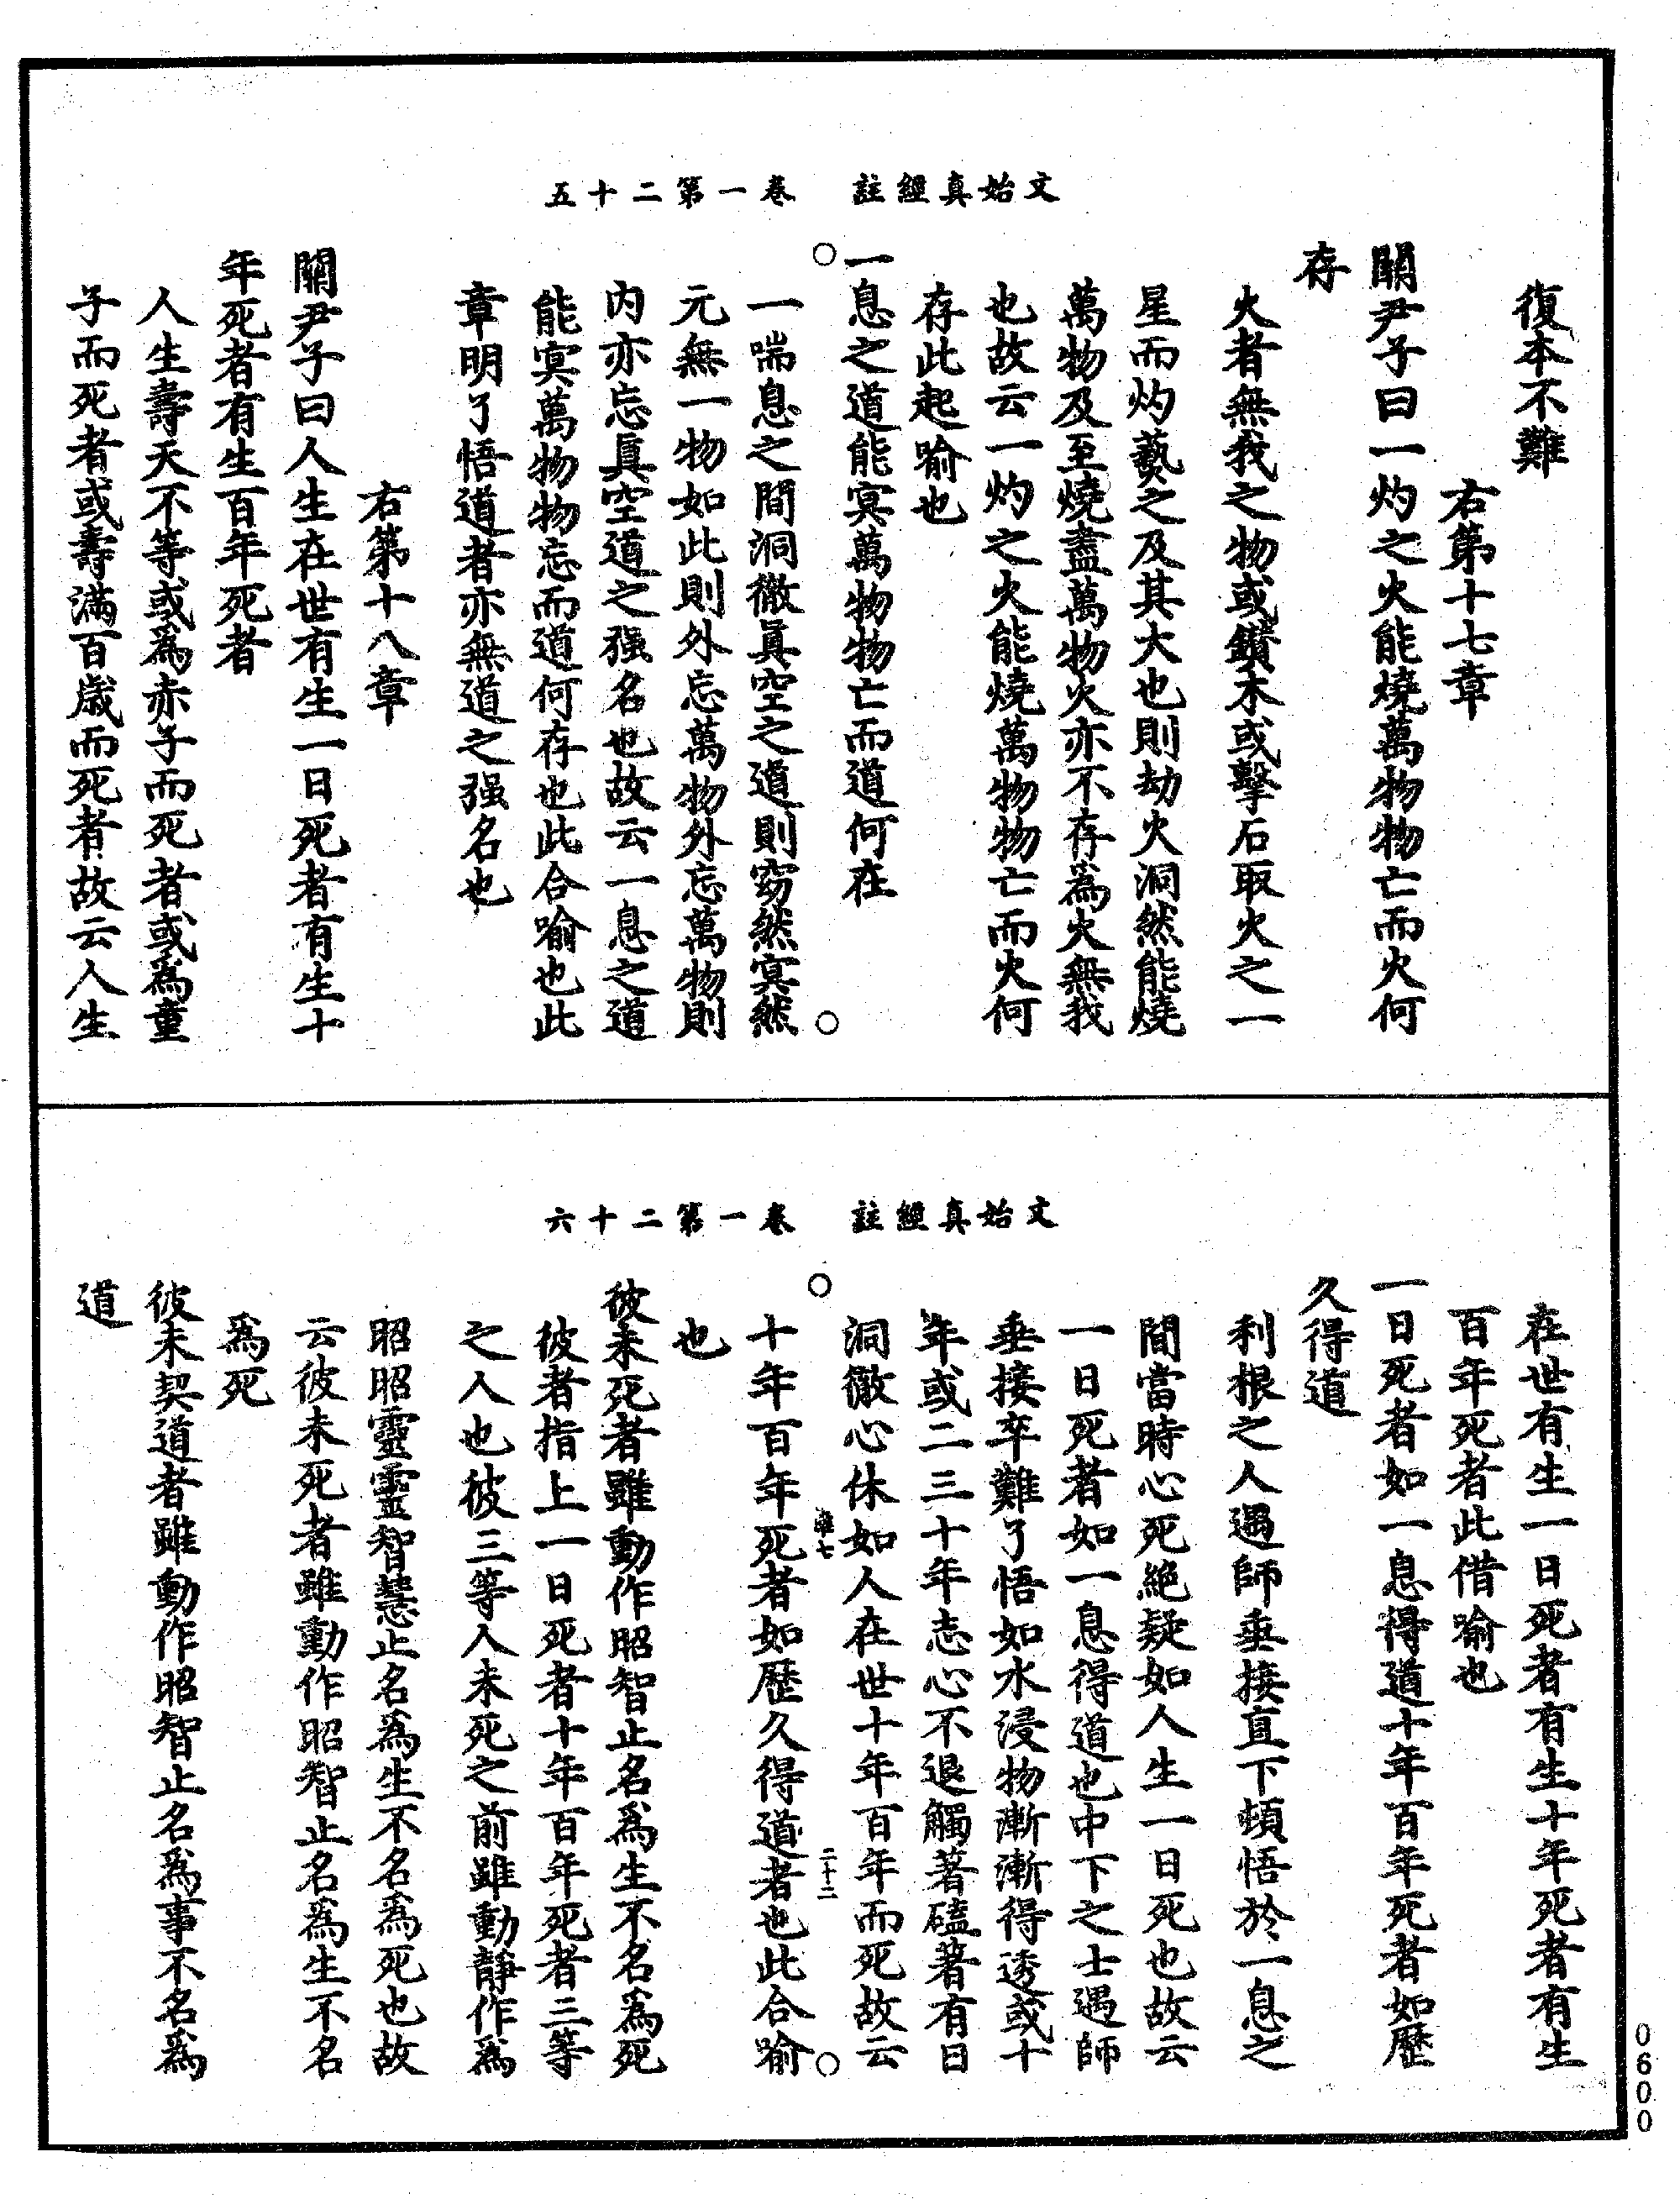 文始真經註　卷一第二十五
復本不難
右第十七章
關尹子曰一灼之火能燒萬物物亡而火何
存
火者無我之物或鑽木或擊石取火之一
星而灼爇之及其大也則劫火洞然能燒
萬物及至燒盡萬物火亦不存為火無我
也故云一灼之火能燒萬物物亡而火何
存此起喻也
一息之道能冥萬物物亡而道何在
一喘息之間洞徹眞空之道則窈然冥然
元無一物如此則外忘萬物外忘萬物則
内亦忘眞空道之强名也故云一息之道
能冥萬物物忘而道何存也此合喻也此
章明了悟道者亦無道之强名也
右第十八章
關尹子曰人生在世有生一日死者有生十
年死者有生百年死者
人生壽夭不等或爲赤子而死者或爲童
子而死者或壽滿百歲而死者故云人生
文始真經註　卷一第二十六
在世有生一日死者有生十年死者有生
百年死者此借喻也
一日死者如一息得道十年百年死者如歷
久得道
利根之人遇師垂接直下頓悟於一息之
間當時心死絕疑如人生一日死也故云
一日死者如一息得道也中下之士遇師
垂接卒難了悟如水浸物漸漸得透或十
年或二三十年志心不退觸著磕著有日
洞徹心休如人在世十年百年而死故云
十年百年死者如歷久得道者也此合喻
也
彼未死者雖動作昭智止名爲生不名爲死
彼者指上一日死者十年百年死者三等
之人也彼三等人未死之前雖動靜作爲
昭昭靈靈智慧止名爲生不名爲死也故
云彼未死者雖動作昭智止名爲生不名
爲死
彼未契道者雖動作昭智止名爲事不名爲
道
二十二
0600